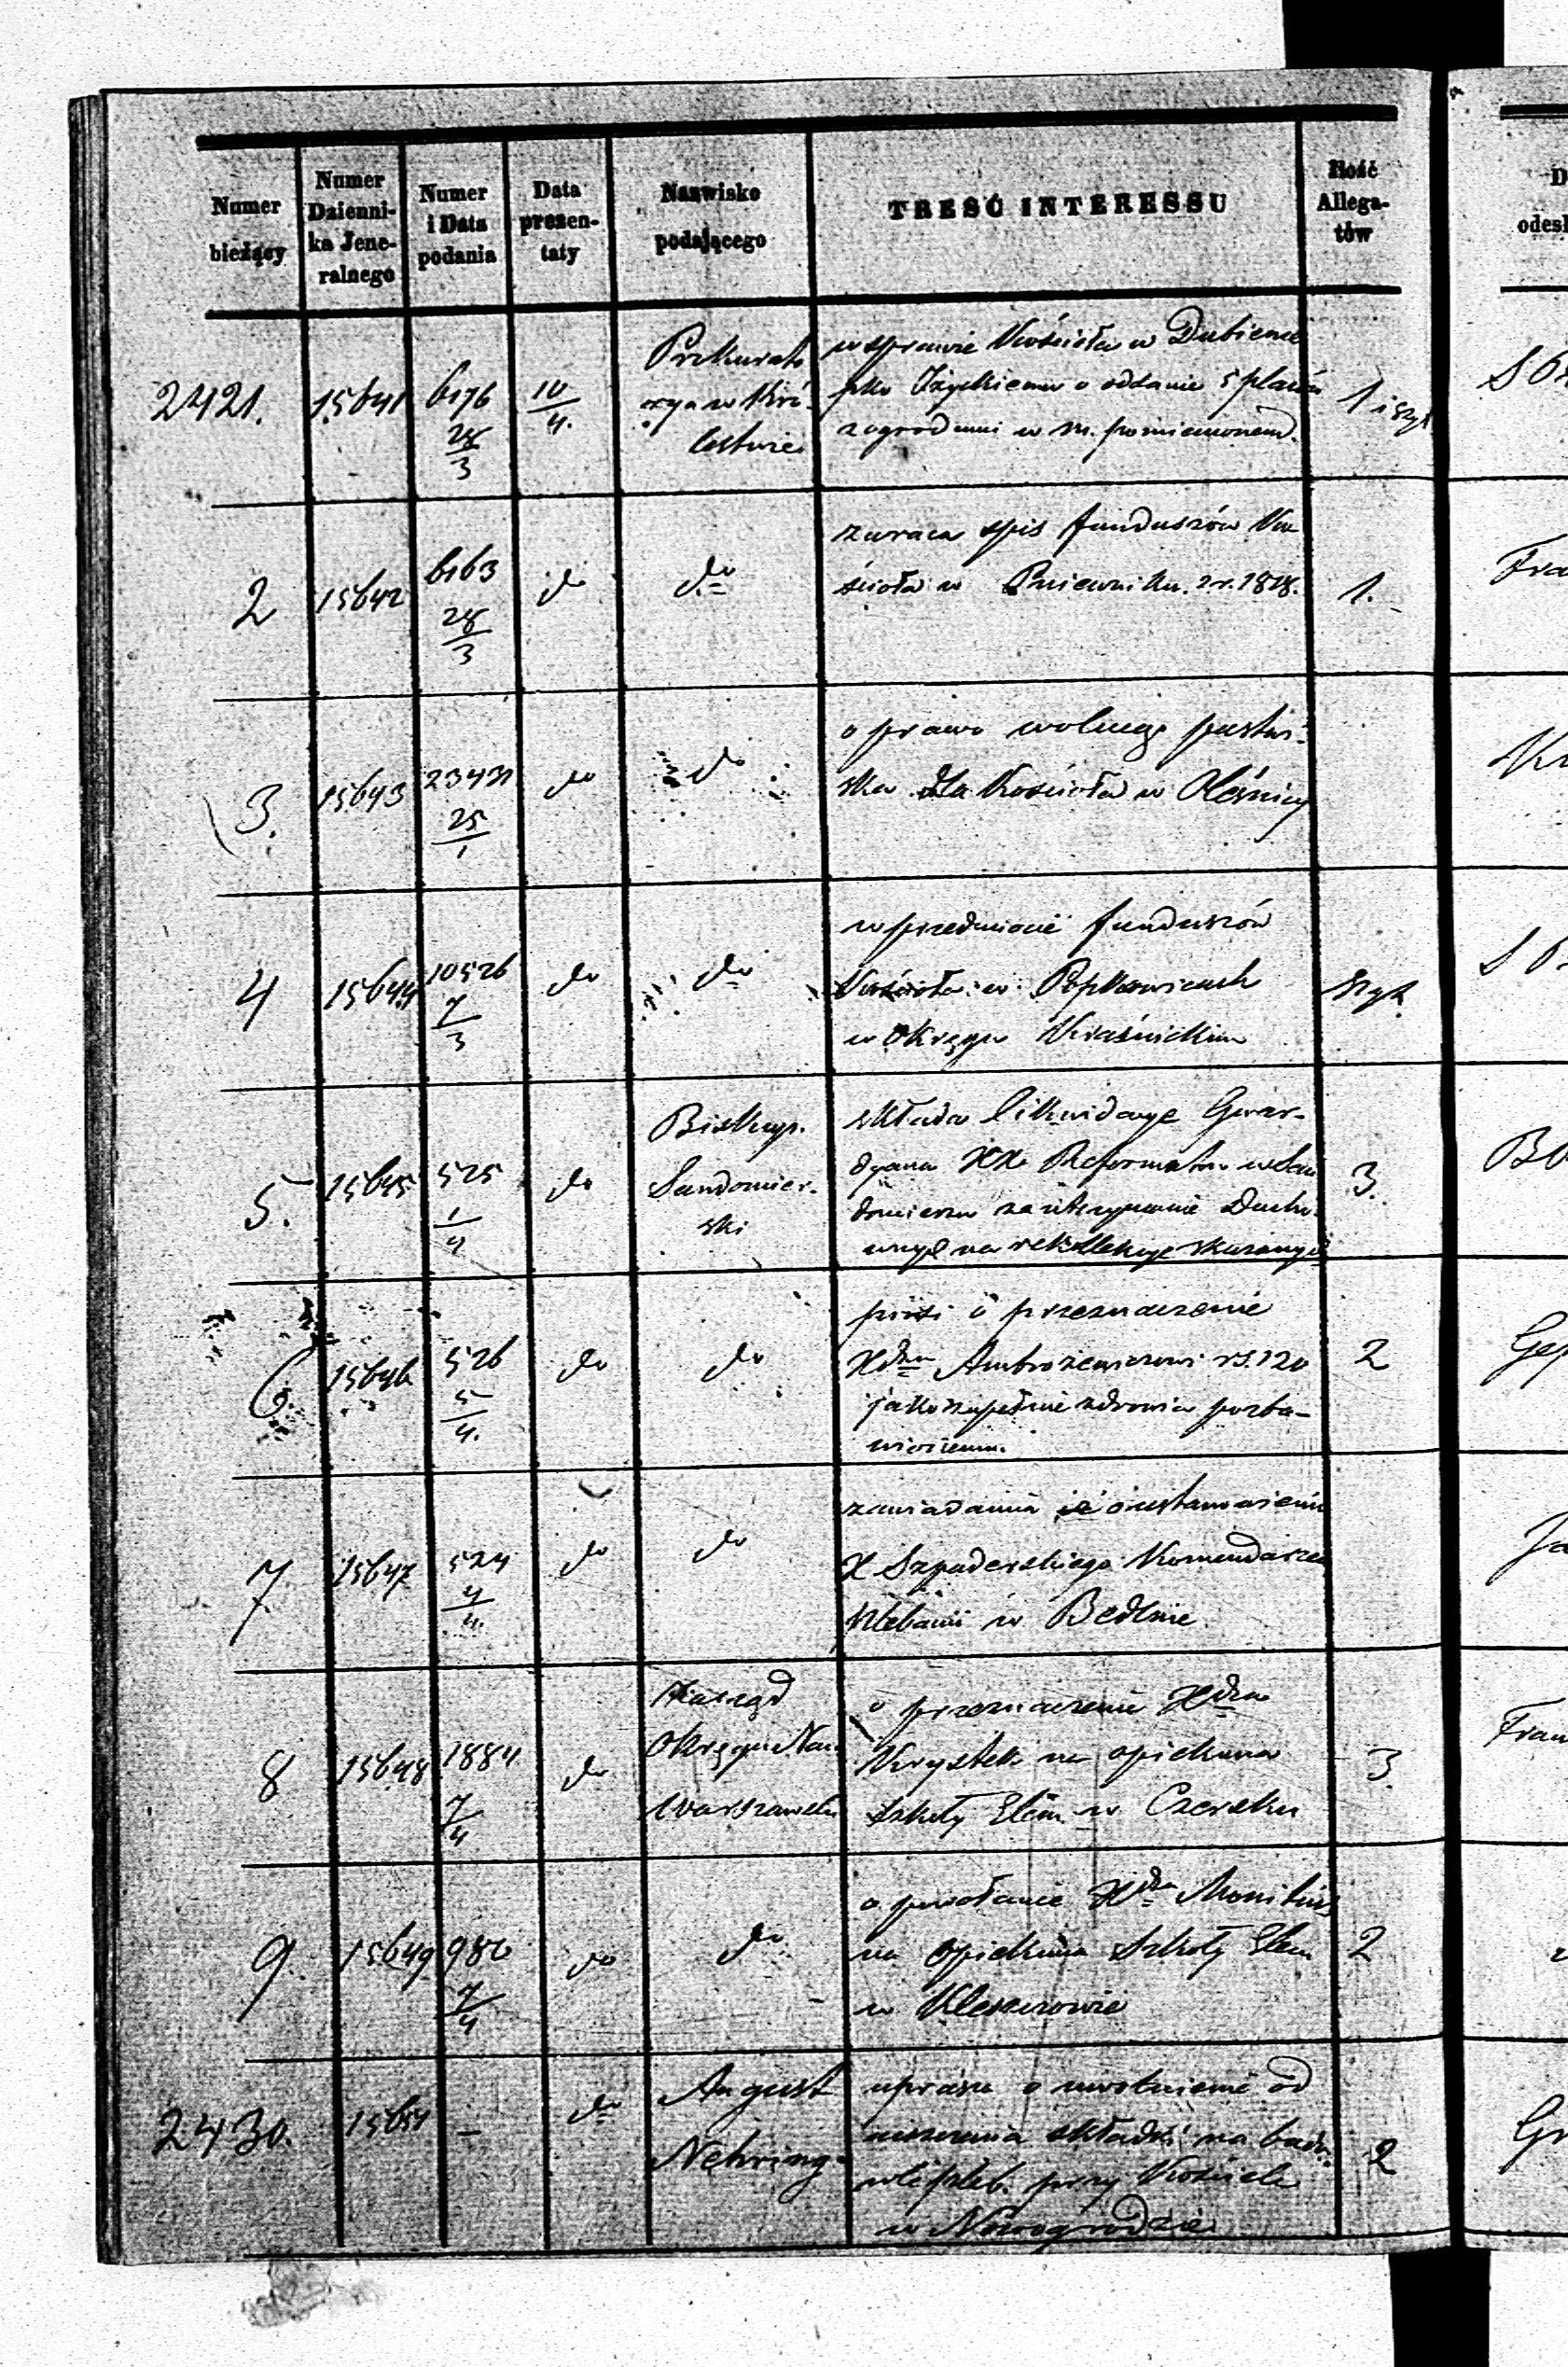 Numer bieżący
Numer Dzienni-ka Jene-ralnego
Numer i Data podania
Data prezen-taty
Nazwisko podającego
TREŚĆ INTERESSU
Ilość Allega-tów
2421. 15641 6176 28/3 10/4. Prokurato
rya w Kró-
lestwie
w sprawie Kościoła w Dubience
pko Iżyckiemu o oddanie 5 placów
zagrodami w m. pomienionem.
1 i szyt
2 15642 6163 28/3 do do
zwraca spis funduszów Ko
ścioła w Pniewniku. z r. 1828.
1.
3. 15643 23431 25/1 do do
o prawo wolnego pastwi-
ska dla Kościoła w Oleśnicy
4 15644 10526 7/3 do do
w przedmiocie funduszów
Kościoła w Popkowicach
w Okręgu Kraśnickim
szyt.
5. 15645 525 1/4 do Biskup.
Sandomier-
ski
składa likwidacye Gwar-
dyana XX. Reformatów w San
domierzu za utrzymanie Ducho
wnych na rekollekcye skazanych
3.
6. 15646 526 5/4. do do
prosi o przeznaczenie
Xdzu Ambrożewiczowi rs. 120
jako zupełnie zdrowia pozba-
wionemu.
2
7. 15647 524 4/4. do do
zawiadamia o ustanowieniu
X Szpaderskiego Komendarzem
plebanii w Bedlnie
8 15648 1884 7/4 do Zarząd
Okręgu Nau.
Warszawski
o przeznaczenie Xdza
Krystek na opiekuna
Szkoły Elem. w Czersku
3.
9. 15649 980 7/4 do do
o powołanie Xdza
na opiekuna Szkoły Elem
w Kleszczowie
2
2430. 15651 – do August
Nehring
uprasza o uwolnienie od
uiszczenia składki na budo
wle pleb. przy Kościele
w Nowogrodzie
2